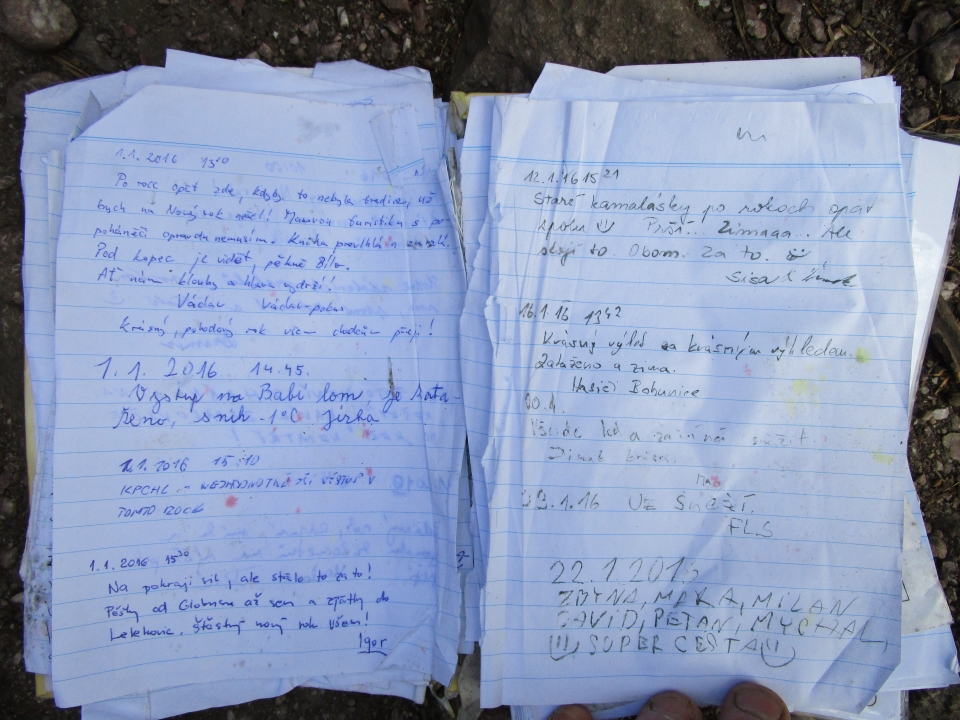 1.1. 2016 13³⁰
Po roce opět zde, kdyby to nebyla tradice, už
bych na Nový rok nešel! Masovou turistiku s
poháněči opravdu nemusím. Knížka provlhlá a
Pod kopec je vidět, pěkně bílo.
Ať nám klouby a hlava vydrží!
Václav
Krásný, pohodový rok všem chodcům přeji!
1.1. 2016 14.45.
Výstup na Babí lom je zata-
ženo, sníh -1°C Jirka
1.1. 2016 15:10
KPCHL - V
TOMTO ROCE
1.1. 2016 15³⁰
Na pokraji sil, ale stálo to za to!
Pěšky od Globusu až sem a zpátky do
Lelekovic. Šťastný nový rok všem!
Igor
12.1.16 15²¹
Staré kamošky po rokoch opäť
spolu Prší... Zimaaa... Ale
stojí to Obom za to.
Sisa &
16.1.16 13⁴²
Krásný výlet za krásným výhledem.
Zataženo a zima.
Hasiči Bohunice
a začíná sněžit.
Jinak krása.
.1.16 Už Sněží.
FLS
22.1.2016
ZDYNA, MIRA, MILAN
DAVID, PETAN, MYCHAL,
SUPER CESTA